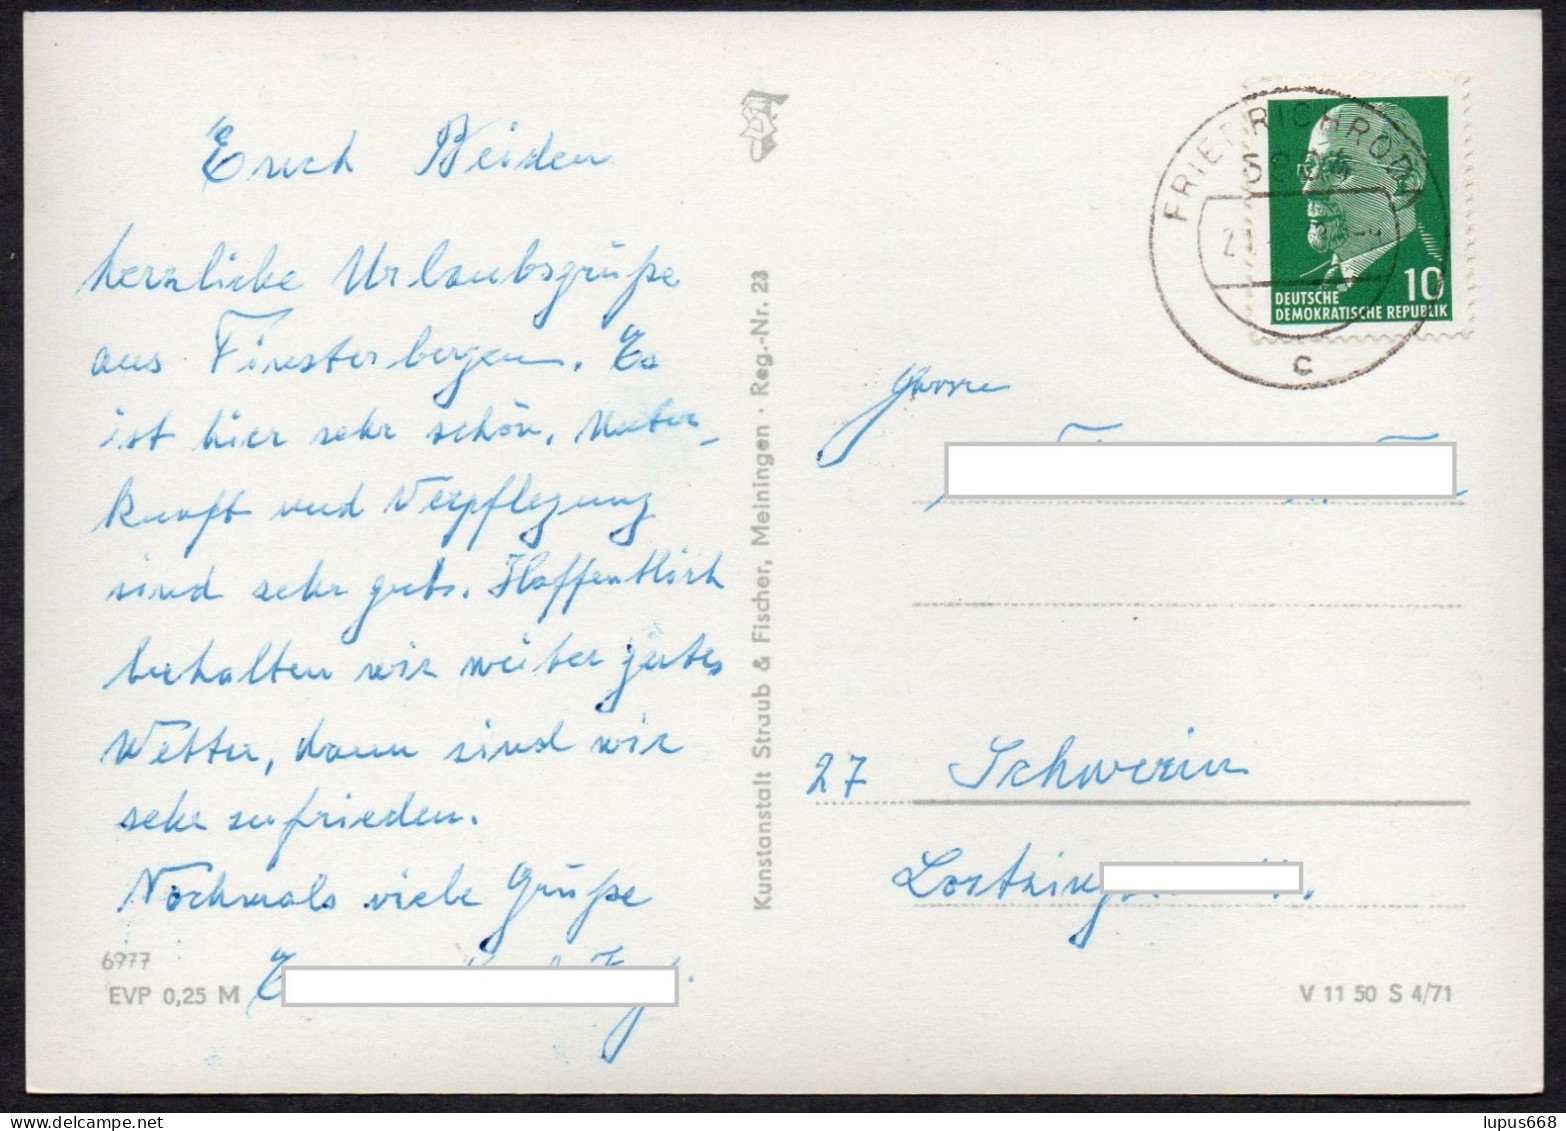 Euch Beiden
herzliche Urlaubsgrüße
aus Finsterbergen. Es
ist hier sehr schön. Unter-
kunft und Verpflegung
sind sehr gut. Hoffentlich
behalten wir weiter gutes
Wetter, dann sind wir
sehr zufrieden.
Nochmals viele Grüße
6977
EVP 0,25 M
Kunstanstalt Straub & Fischer, Meiningen · Reg.-Nr. 23
FRIEDRICHRODA
5804
c
10
DEUTSCHE
DEMOKRATISCHE REPUBLIK
27 Schwerin
Lortzing
V 11 50 S 4/71
lupus668